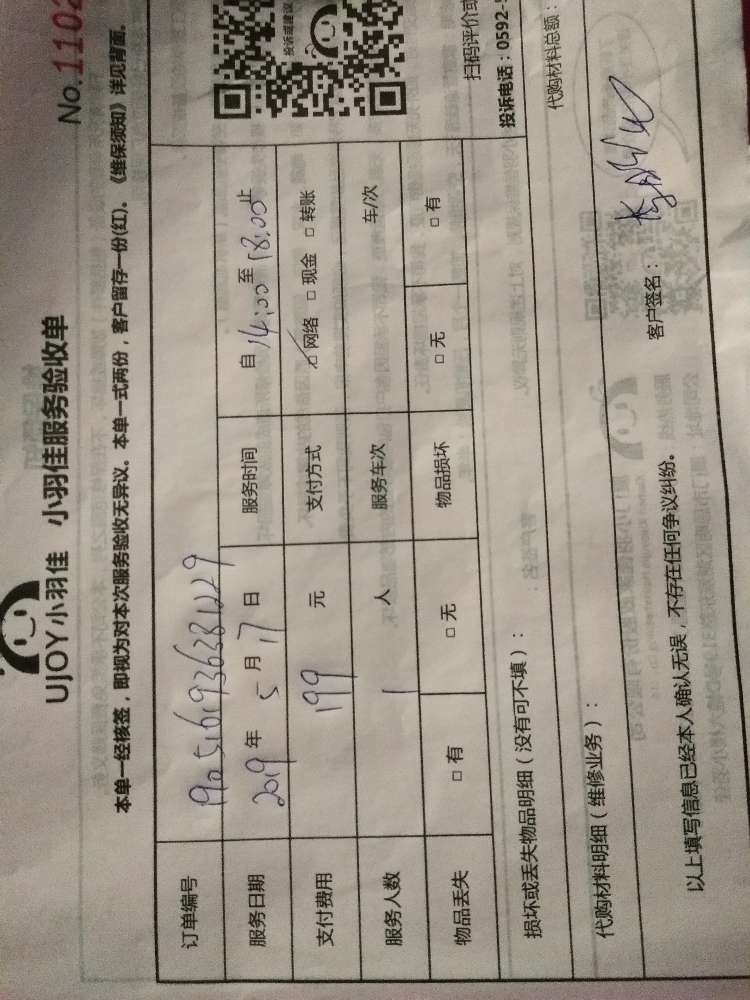 UJOY小羽佳 小羽佳服务验收单
No.1102
本单一经核签，即视为对本次服务验收无异议。本单一式两份，客户留存一份(红)。《维保须知》详见背面。
订单编号
服务日期 2019 年 5 月 17 日 服务时间 自 14:00 至 18:00 止
支付费用 199 元 支付方式 ☑ 网络 □ 现金 □ 转账
服务人数 1 人 服务车次 车/次
物品丢失 □ 有 □ 无 物品损坏 □ 无 □ 有
投诉或建议
扫码评价或
损坏或丢失物品明细（没有可不填）：
投诉电话：0592-
代购材料明细（维修业务）：
代购材料总额：
以上填写信息已经本人确认无误，不存在任何争议纠纷。
客户签名：